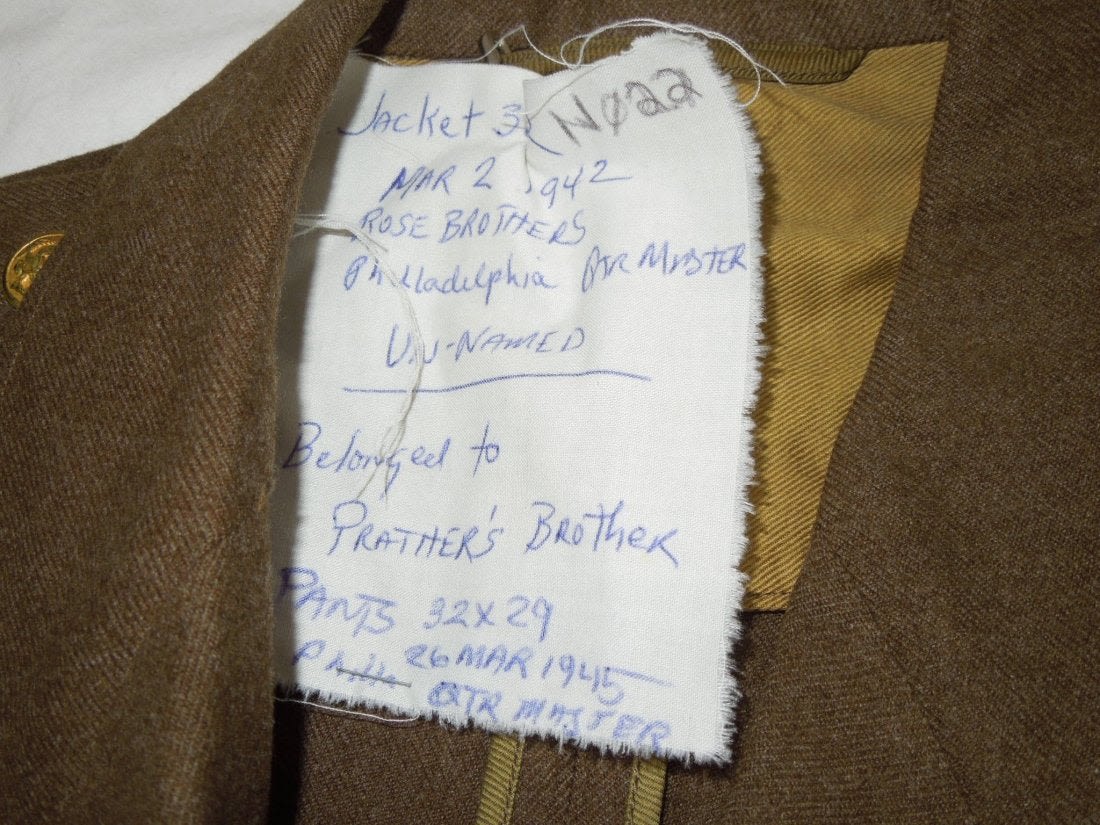 Jacket
NØ22
MAR 2 1942
ROSE BROTHERS
Philladelphia QTR MASTER
UN-NAMED
Belonged to
PRATHER'S BROTHER
PANTS 32X29
26 MAR 1945
QTR MASTER